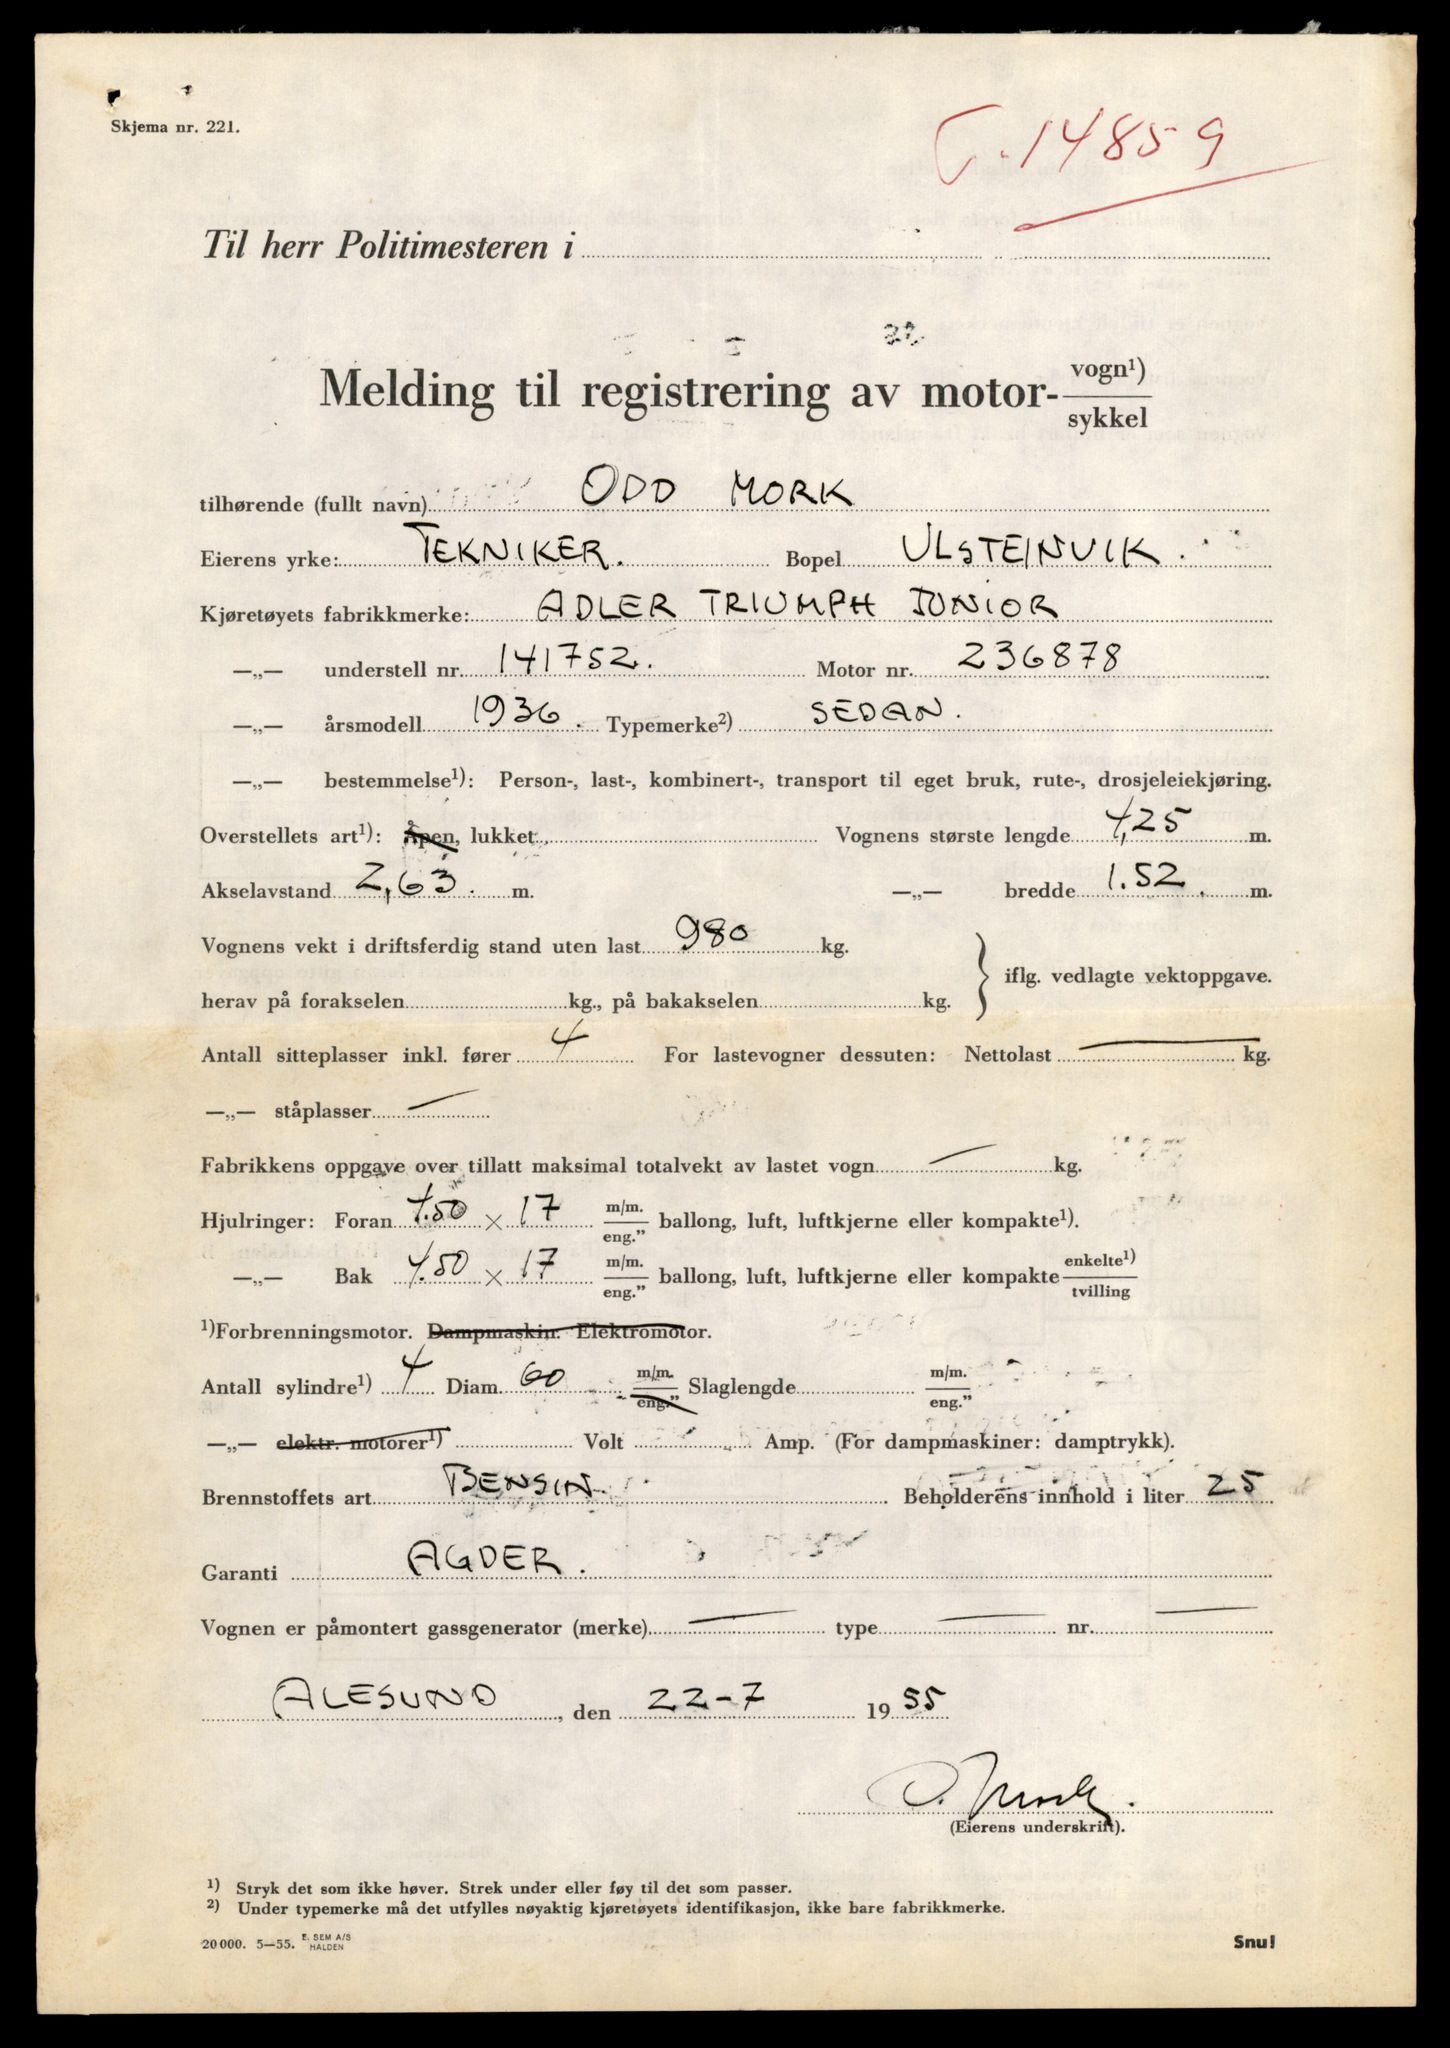 Skjema nr. 221.
14859
Til herr Politimesteren i
Melding til registrering av motor- vogn1) / sykkel
tilhørende (fullt navn) ODD MORK
Eierens yrke: TEKNIKER. Bopel ULSTEINVIK.
Kjøretøyets fabrikkmerke: ADLER TRIUMPH JUNIOR
—„— understell nr. 141752. Motor nr. 236878
—„— årsmodell 1936. Typemerke2) SEDAN.
—„— bestemmelse1): Person-, last-, kombinert-, transport til eget bruk, rute-, drosjeleiekjøring.
Overstellets art1): Åpen, lukket Vognens største lengde 4,25 m.
Akselavstand 2,63 m. —„— bredde 1.52 m.
Vognens vekt i driftsferdig stand uten last 980 kg.
iflg. vedlagte vektoppgave.
herav på forakselen kg., på bakakselen kg.
Antall sitteplasser inkl. fører 4 For lastevogner dessuten: Nettolast — kg.
—„— ståplasser —
Fabrikkens oppgave over tillatt maksimal totalvekt av lastet vogn — kg.
Hjulringer: Foran 4.50 × 17 m/m. / eng.” ballong, luft, luftkjerne eller kompakte1).
—„— Bak 4.50 × 17 m/m. / eng.” ballong, luft, luftkjerne eller kompakte enkelte1) / tvilling
1)Forbrenningsmotor. Dampmaskin. Elektromotor.
Antall sylindre1) 4 Diam. 60 m/m. / eng.” Slaglengde m/m. / eng.”
—„— elektr. motorer1) Volt Amp. (For dampmaskiner: damptrykk).
Brennstoffets art BENSIN Beholderens innhold i liter 25
Garanti AGDER.
Vognen er påmontert gassgenerator (merke) — type — nr. —
ALESUND, den 22-7 1955
O. Mork.
(Eierens underskrift).
1) Stryk det som ikke høver. Strek under eller føy til det som passer.
2) Under typemerke må det utfylles nøyaktig kjøretøyets identifikasjon, ikke bare fabrikkmerke.
20000. 5—55. E. SEM A/S HALDEN
Snu!